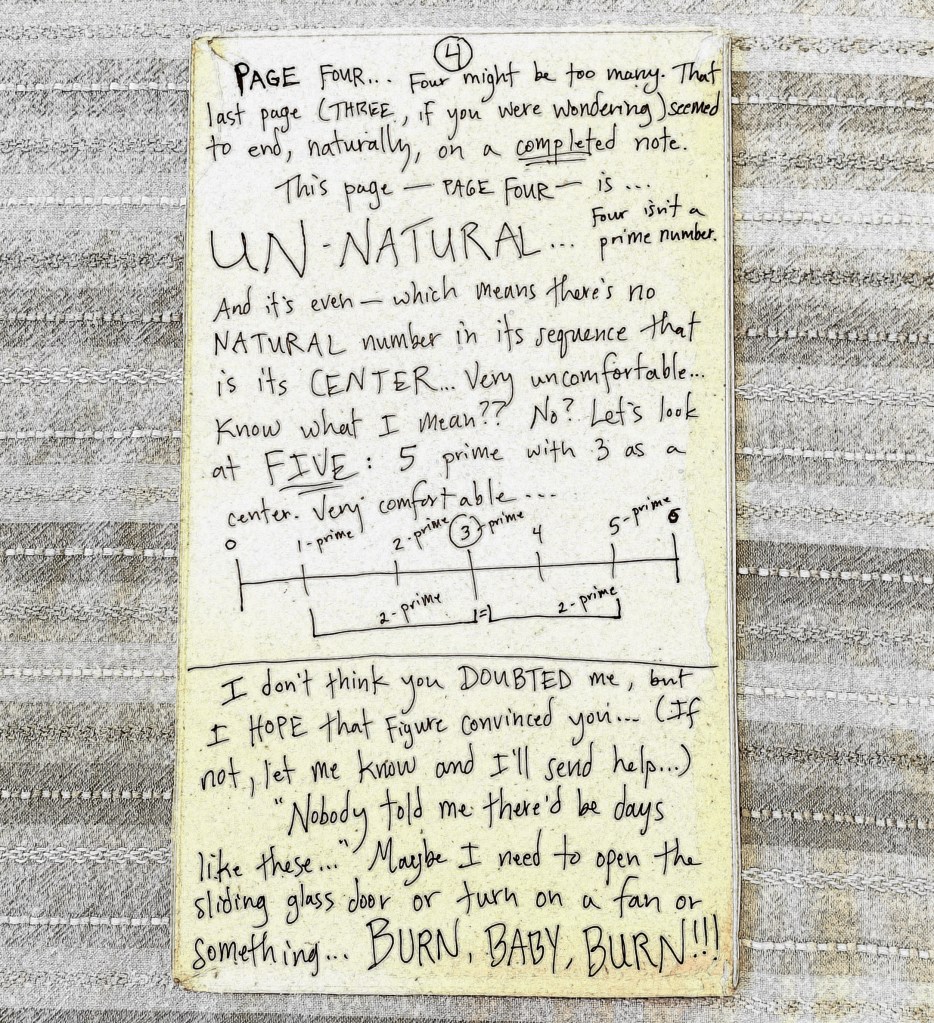 4
PAGE FOUR... Four might be too many. That
last page (THREE, if you were wondering) seemed
to end, naturally, on a completed note.
This page — PAGE FOUR — is ...
UN-NATURAL... Four isn't a
prime number.
And it's even — which means there's no
NATURAL number in its sequence that
is its CENTER... Very uncomfortable...
Know what I mean?? No? Let's look
at FIVE: 5 prime with 3 as a
center. Very comfortable...
0 1-prime 2-prime 3-prime 4 5-prime 6
2-prime = 2-prime
I don't think you DOUBTED me, but
I HOPE that Figure convinced you... (If
not, let me know and I'll send help...)
"Nobody told me there'd be days
like these..." Maybe I need to open the
sliding glass door or turn on a fan or
something... BURN, BABY, BURN!!!